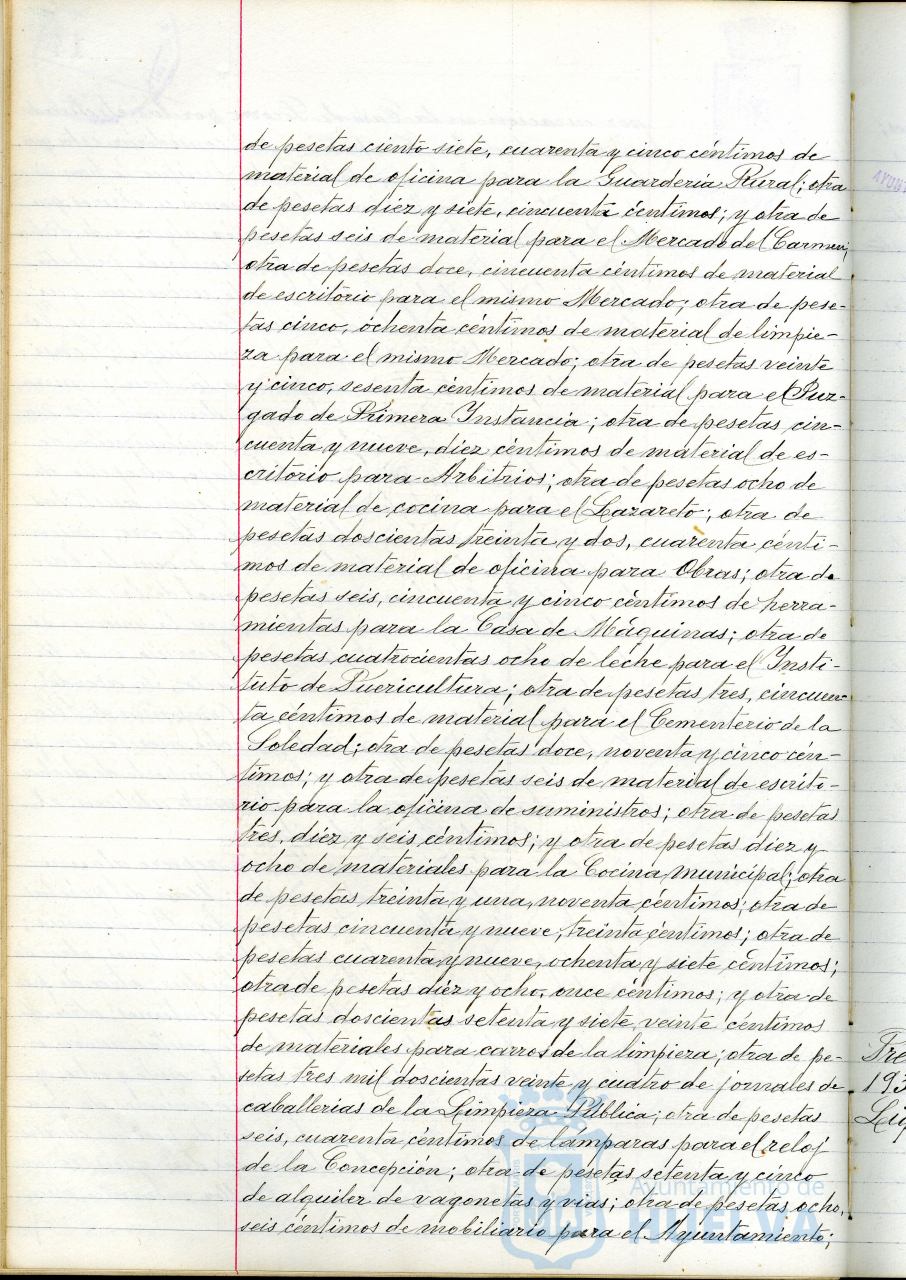 de pesetas ciento siete, cuarenta y cinco céntimos de
material de oficina para la Guardería Rural; otra
de pesetas diéz y siete, cincuenta céntimos; y otra de
pesetas seis de material para el Mercado del Carmen;
otra de pesetas doce, cincuenta céntimos de material
de escritorio para el mismo Mercado; otra de pese-
tas cinco, ochenta céntimos de material de limpie-
za para el mismo Mercado; otra de pesetas veinte
y cinco, sesenta céntimos de material para el Juz-
gado de Primera Instancia; otra de pesetas cin-
cuenta y nueve, diéz céntimos de material de es-
critorio para Arbitrios; otra de pesetas ocho de
material de cocina para el Lazareto; otra de
pesetas doscientas treinta y dos, cuarenta cénti-
mos de material de oficina para Obras; otra de
pesetas seis, cincuenta y cinco céntimos de herra-
mientas para la Casa de Máquinas; otra de
pesetas cuatrocientas ocho de leche para el Insti-
tuto de Puericultura; otra de pesetas tres, cincuen-
ta céntimos de material para el Cementerio de la
Soledad; otra de pesetas doce, noventa y cinco cén-
timos; y otra de pesetas seis de material de escrito-
rio para la oficina de suministros; otra de pesetas
tres, diéz y seis céntimos; y otra de pesetas diéz y
ocho de materiales para la Cocina municipal; otra
de pesetas treinta y una, noventa céntimos; otra de
pesetas cincuenta y nueve, treinta céntimos; otra de
pesetas cuarenta y nueve, ochenta y siete céntimos;
otra de pesetas diéz y ocho, once céntimos; y otra de
pesetas doscientas setenta y siete, veinte céntimos
de materiales para carros de la limpiera; otra de pe-
setas tres mil doscientas veinte y cuatro de jornales de
caballerias de la Limpieza Pública; otra de pesetas
seis, cuarenta céntimos de lámparas para el reloj
de la Concepción; otra de pesetas setenta y cinco
de alquiler de vagonetas y vias; otra de pesetas ocho,
seis céntimos de mobiliario para el Ayuntamiento;
Ayuntamiento de
HUELVA